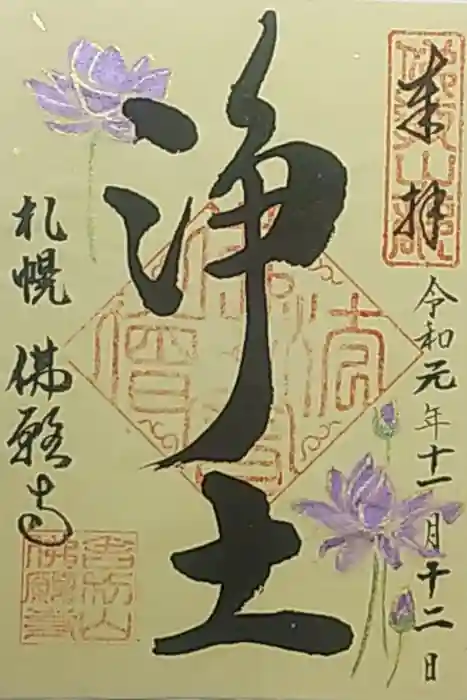 来拝
令和元年十一月十二日
浄土
札幌 佛願寺